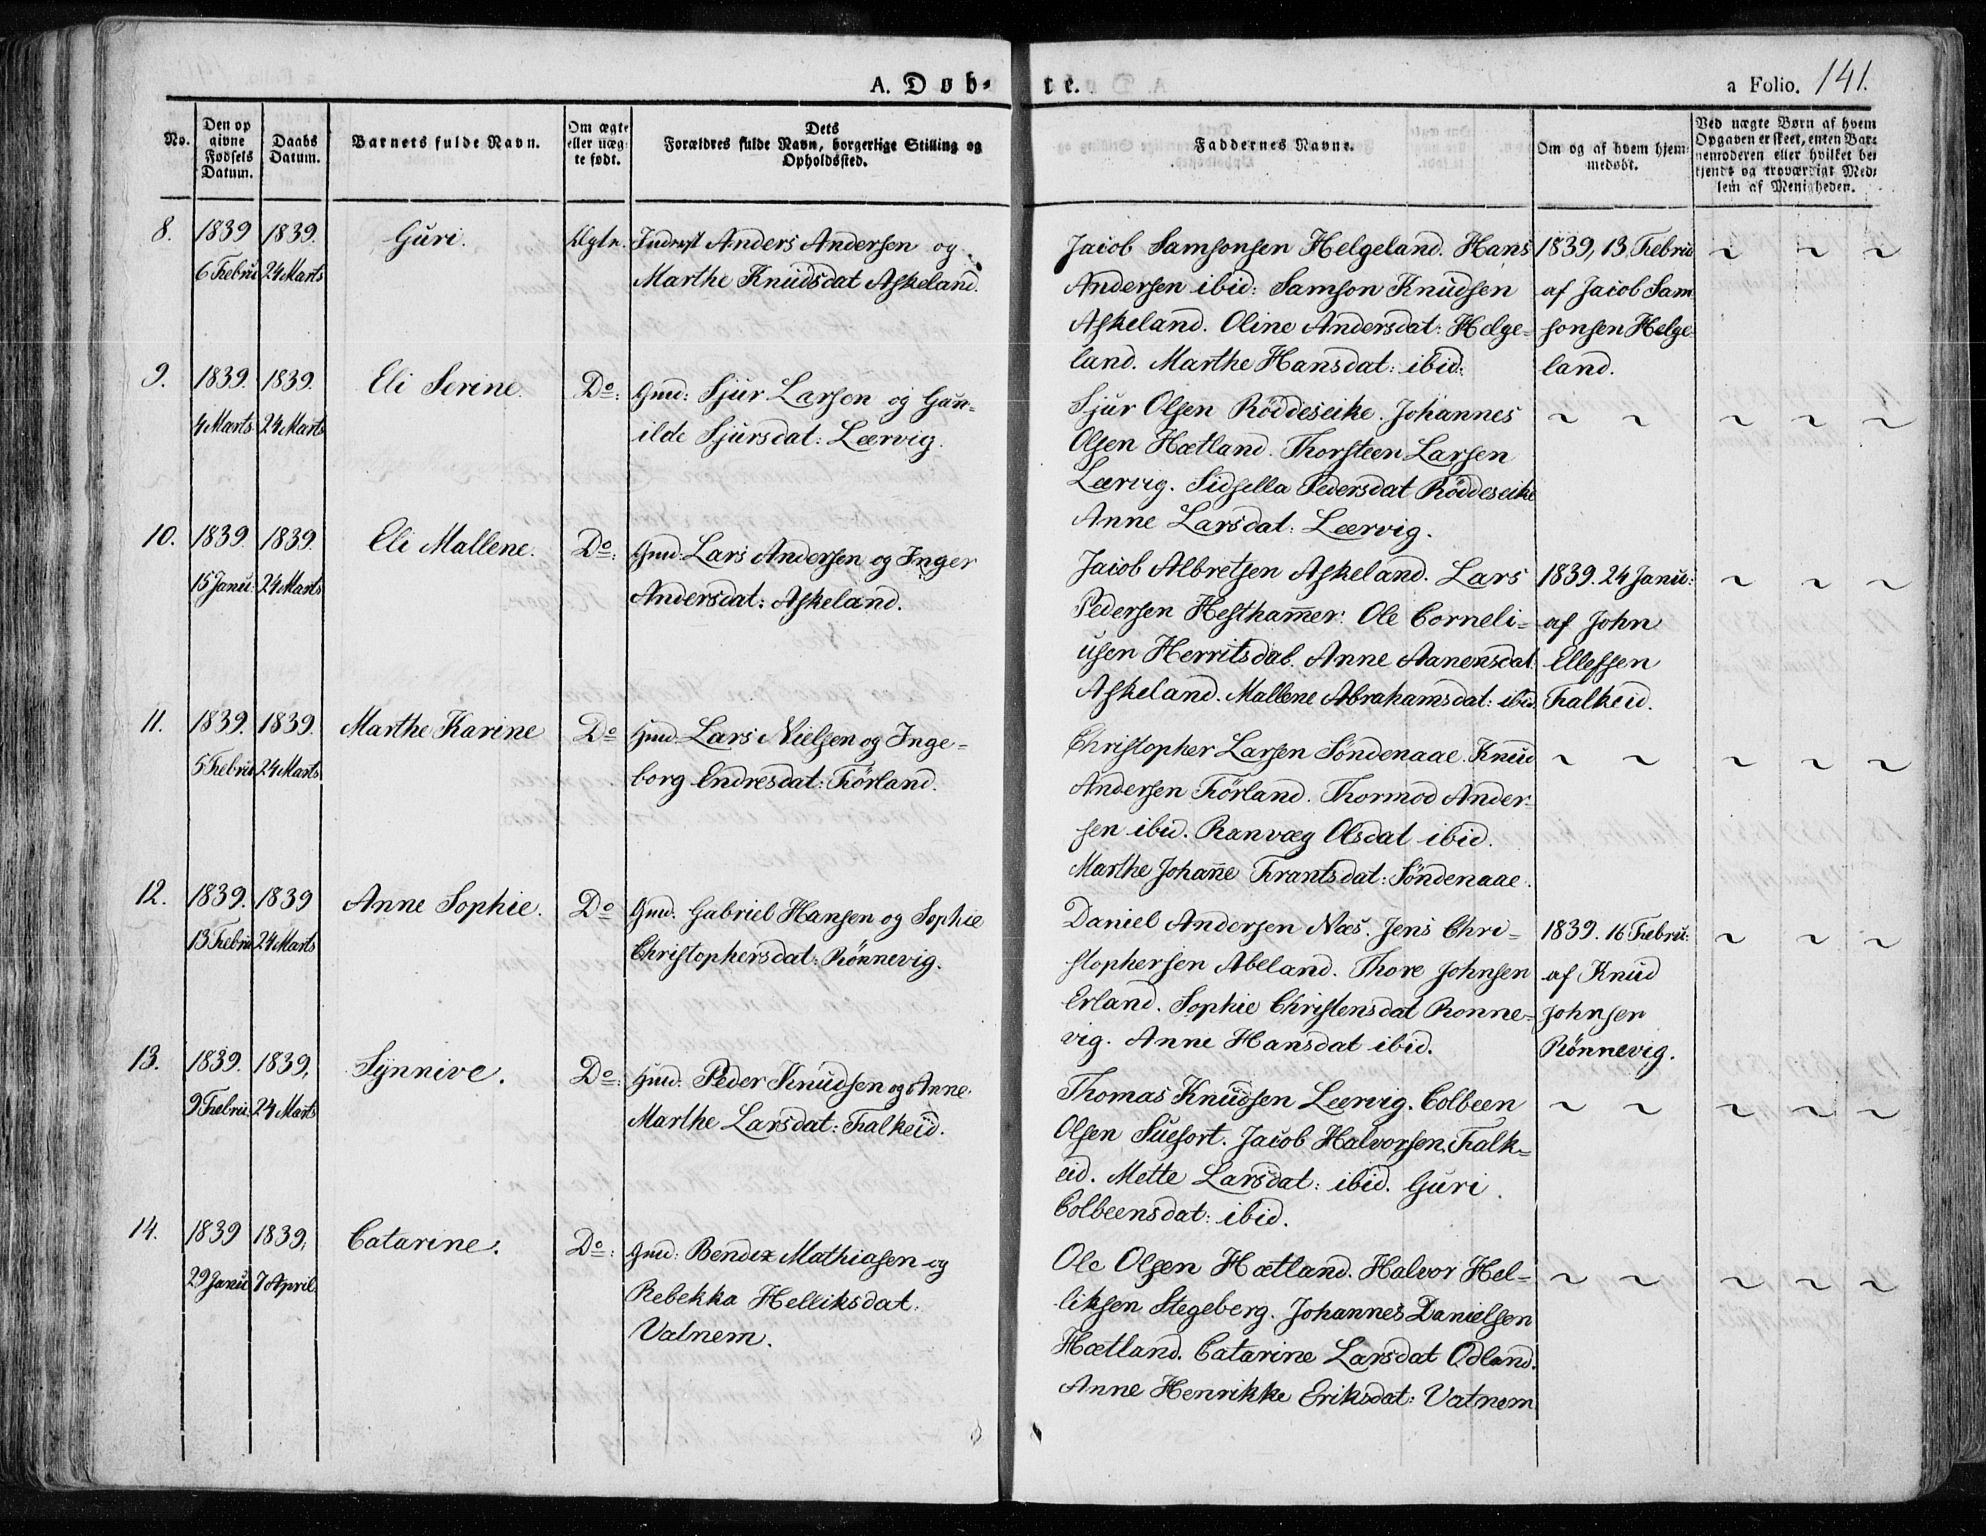 A. Døb- te. a Folio. 141.
No. Den opgivne Fødsels Datum. Daabs Datum. Barnets fulde Navn. Om ægte eller uægte født. Dets Forældres fulde Navn, borgerlige Stilling og Opholdssted. Faddernes Navne. Om og af hvem hjemmedøbt. Ved uægte Børn af hvem Opgaven er skeet, enten Barnemoderen eller hvilket bekjendt og troværdigt Medlem af Menigheden.
8. 1839 1839. Guri. Ægte. Inderst Anders Andersen og
6 Febru 24 Marts Marthe Knudsdat Askeland.
Jacob Samsonsen Helgeland. Hans 1839, 13 Febru
Andersen ibid: Samson Knudsen af Jacob Sam
Askeland. Oline Andersdat: Helge- sonsen Helge
land. Marthe Hansdat: ibid: land.
9. 1839. 1839. Eli Serine. Do: Gmd: Sjur Larsen og Gun-
4 Marts 24 Marts ilde Sjursdat: Leervig.
Sjur Olsen Røddeseike. Johannes ~ ~ ~ ~ ~
Olsen Hætland. Thorsteen Larsen
Lærvig. Sidsella Pedersdat Røddeseike
Anne Larsdat: Leervig.
10. 1839. 1839. Eli Mallene. Do: Gmd. Lars Andersen og Inger
15 Janu: 24 Marts Andersdat: Askeland.
Jacob Albretsen Askeland. Lars 1839. 24 Janu: ~ ~ ~
Pedersen Hesthammer: Ole Corneli- af John
usen Herritsdal. Anne Aanensdat. Ellefsen
Askeland. Mallene Abrahamsdat: ibid. Falkeid.
11. 1839. 1839. Marthe Karine Do Gmd. Lars Nielsen og Inge-
5 Febru 24 Marts borg Endresdat:Førland.
Christopher Larsen Søndenaae. Knud ~ ~ ~ ~ ~
Andersen Førland. Thormod Ander-
sen ibid. Ranvæg Olsdat ibid.
Marthe Johanne Frantsdat: Søndenaae.
12. 1839. 1839 Anne Sophie. Do Gmd. Gabriel Hansen og Sophie
13 Febru 24 Marts Christophersdat: Rønnevig.
Daniel Andersen Næs. Jens Chri- 1839. 16 Febru: ~ ~ ~
stophersen Abeland. Thore Johnsen af Knud
Erland. Sophie Christensdat Ronne- Johnsen
vig. Anne Hansdat ibid. Rønnevig.
13. 1839. 1839, Synnive. Do: Gmd. Peder Knudsen og Anne
9 Febru 24 Marts Marthe Larsdat: Falkeid.
Thomas Knudsen Leervig. Colbeen ~ ~ ~ ~ ~
Olsen Suesort. Jacob Halvorsen. Falk-
eid. Mette Larsdat: ibid. Guri
Colbeensdat: ibid.
14. 1839 1839. Catarine. Do: Gmd: Bendix Mathiasen og
29 Janu 7 April Rebekka Helliksdat:
Vatnem.
Ole Olsen Hætland. Halvor Hel- ~ ~ ~ ~ ~
liksen Stegeberg. Johannes Danielsen
Hætland. Catarine Larsdat Odland.
Anne Henrikke Eriksdat: Vatnem